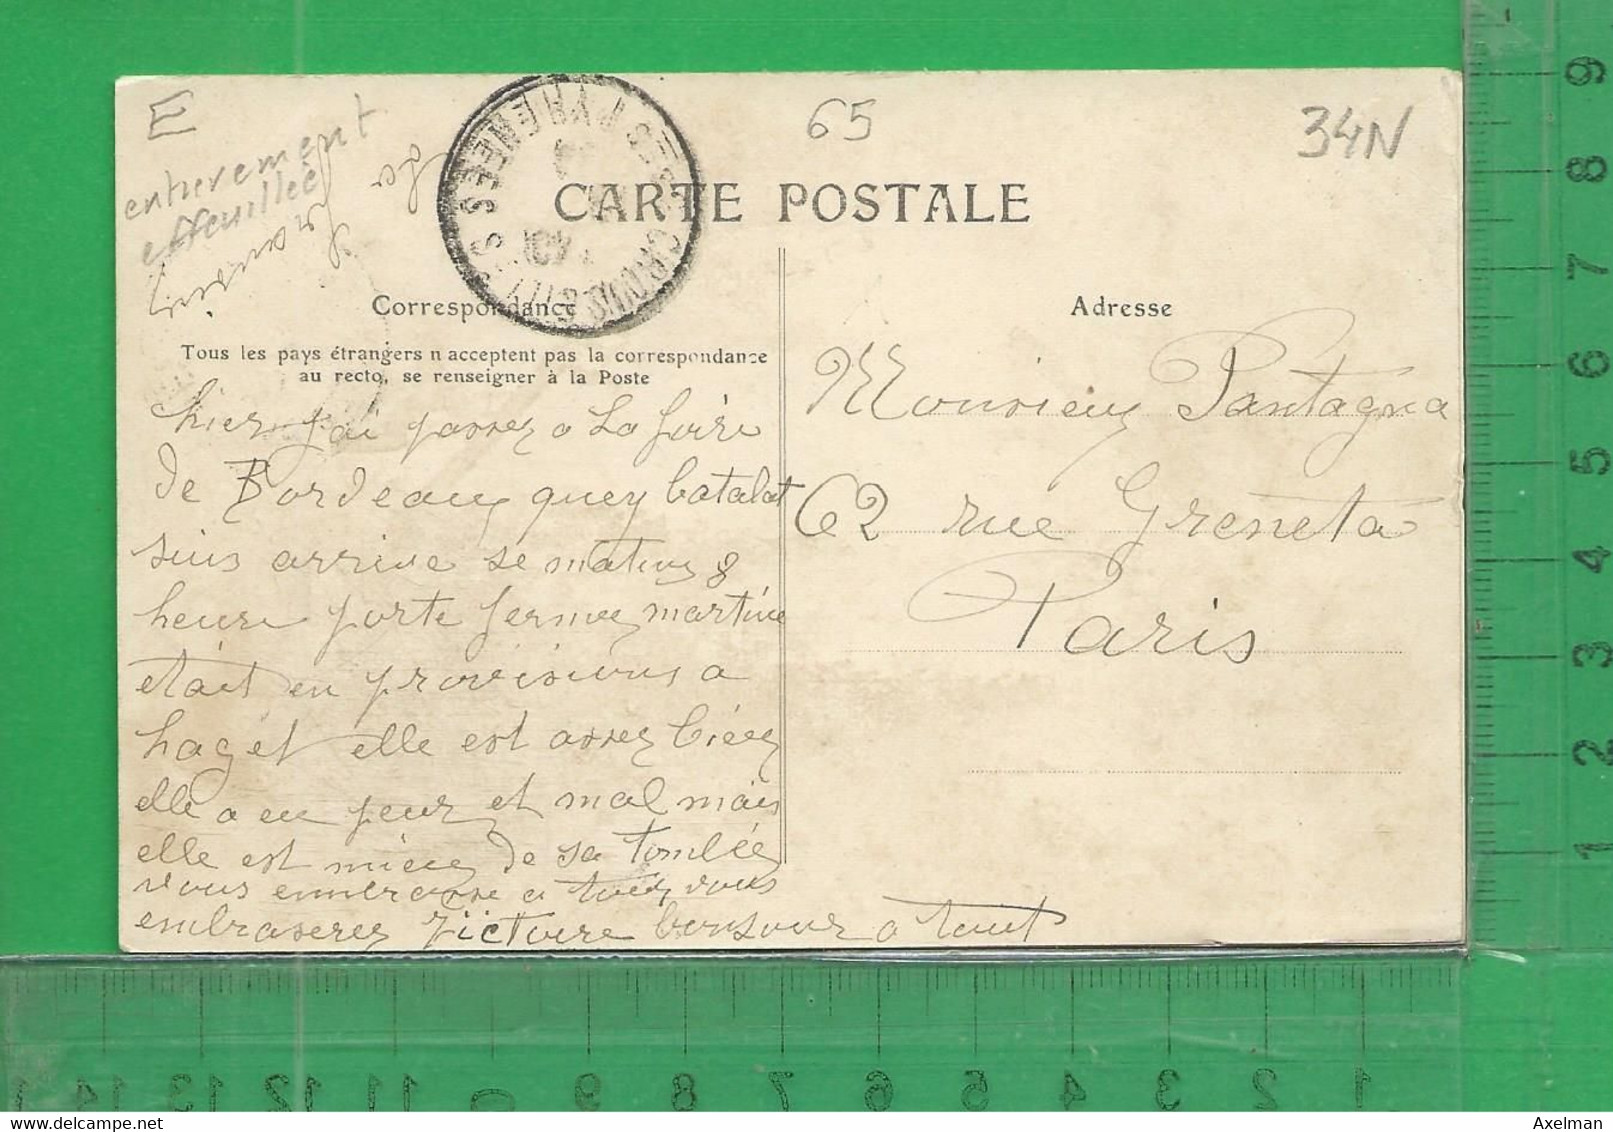 E
entièrement
effeuillée
65
34N
CARTE POSTALE
PYRENEES
Correspondance
Adresse
Tous les pays étrangers n acceptent pas la correspondance
au recto, se renseigner à la Poste
hier j'ai passez a La foire
de Bordeaux quey batalat
suis arrive se matin 8
heure porte fermez martine
était en provisions a
haget elle est assez biéen
elle a eu peur et mal mais
elle est mieux de sa tombée
vous embrasse a tous vous
embraserez Victoire bonsoir a tout
Monsieur Pantagna
62 rue Greneta
Paris
9
8
7
6
5
4
3
2
1
14 13 12 11 9 8 7 6 5 4 3 2 1
www.delcampe.net
Axelman